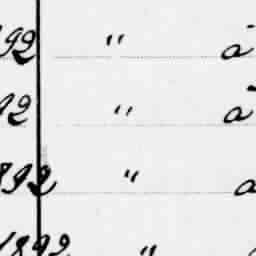 92 " a
92 " a
892 " a
1892 "